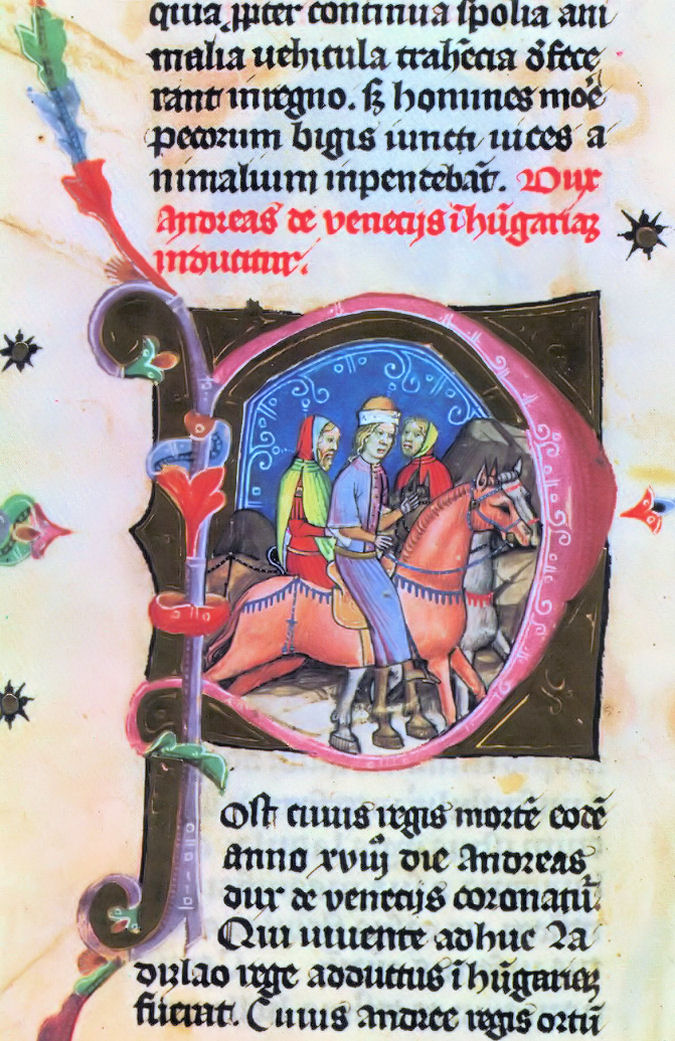 quia ꝓpter continua spolia ani
malia uehicula trahẽcia d̃fece
rant in regno. sꝫ homines moẽ
pecorum bigis iuncti uices a
nimalium inpendebãt. Dux
Andreas de venecijs ĩ hũgariaꝫ
inducitur.
Post cuius regis mortẽ eodẽ
anno xviij die Andreas
dux de venecijs coronatũ.
Qui uiuente adhuc La
dizlao rege adductus ĩ hũgariaꝫ
fuerat. Cuius Andree regis ortũ